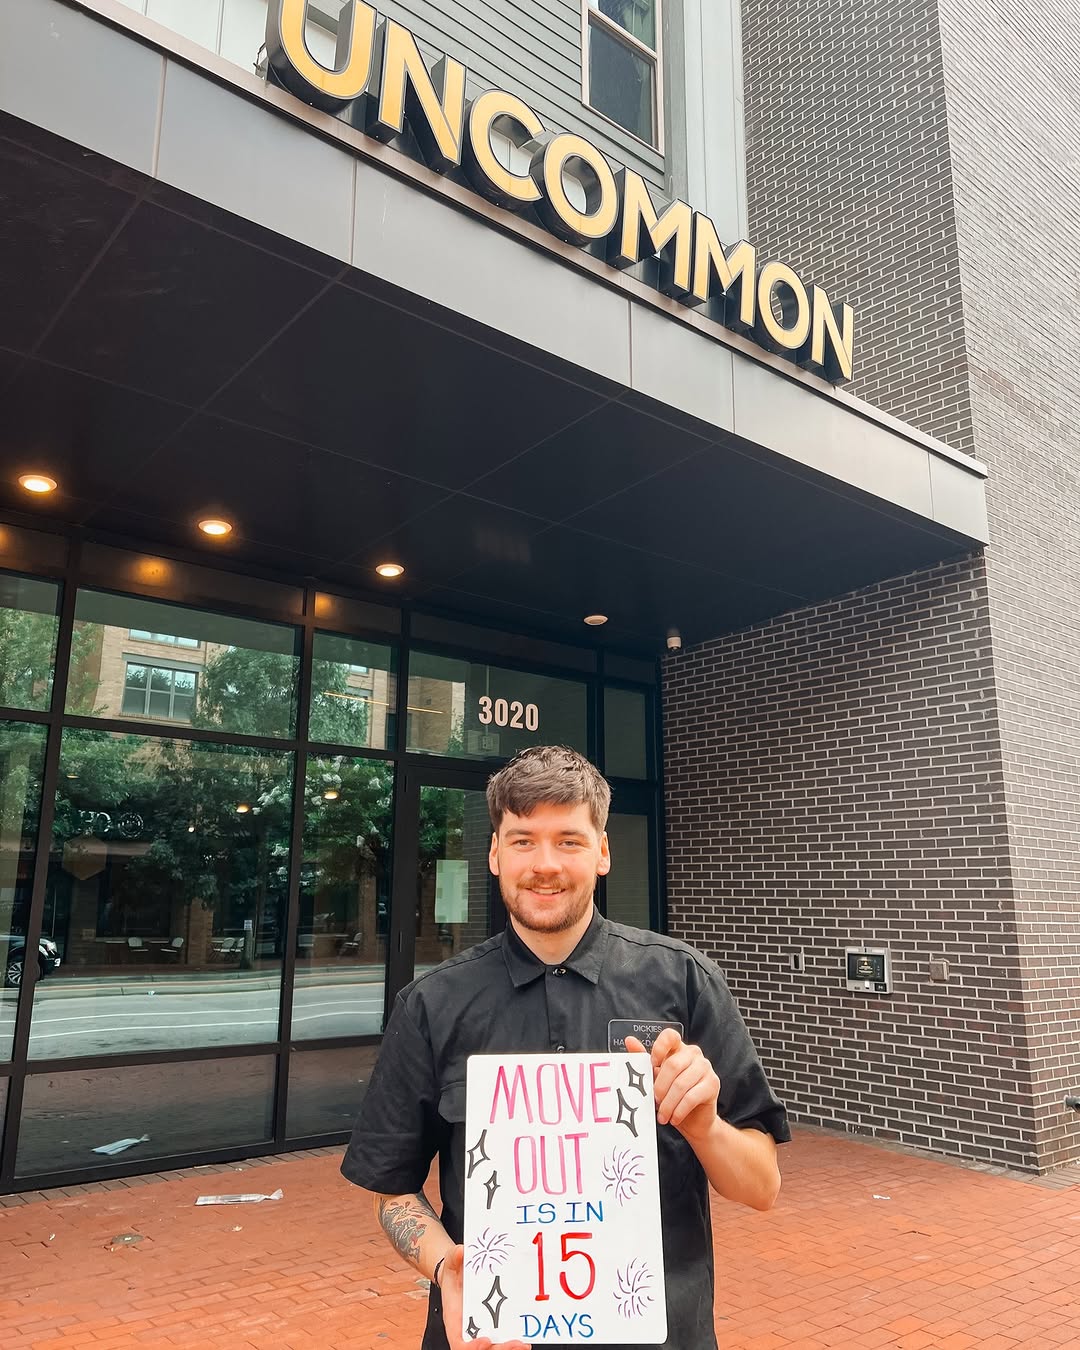 UNCOMMON
3020
DICKIES
X
MOVE
OUT
IS IN
15
DAYS